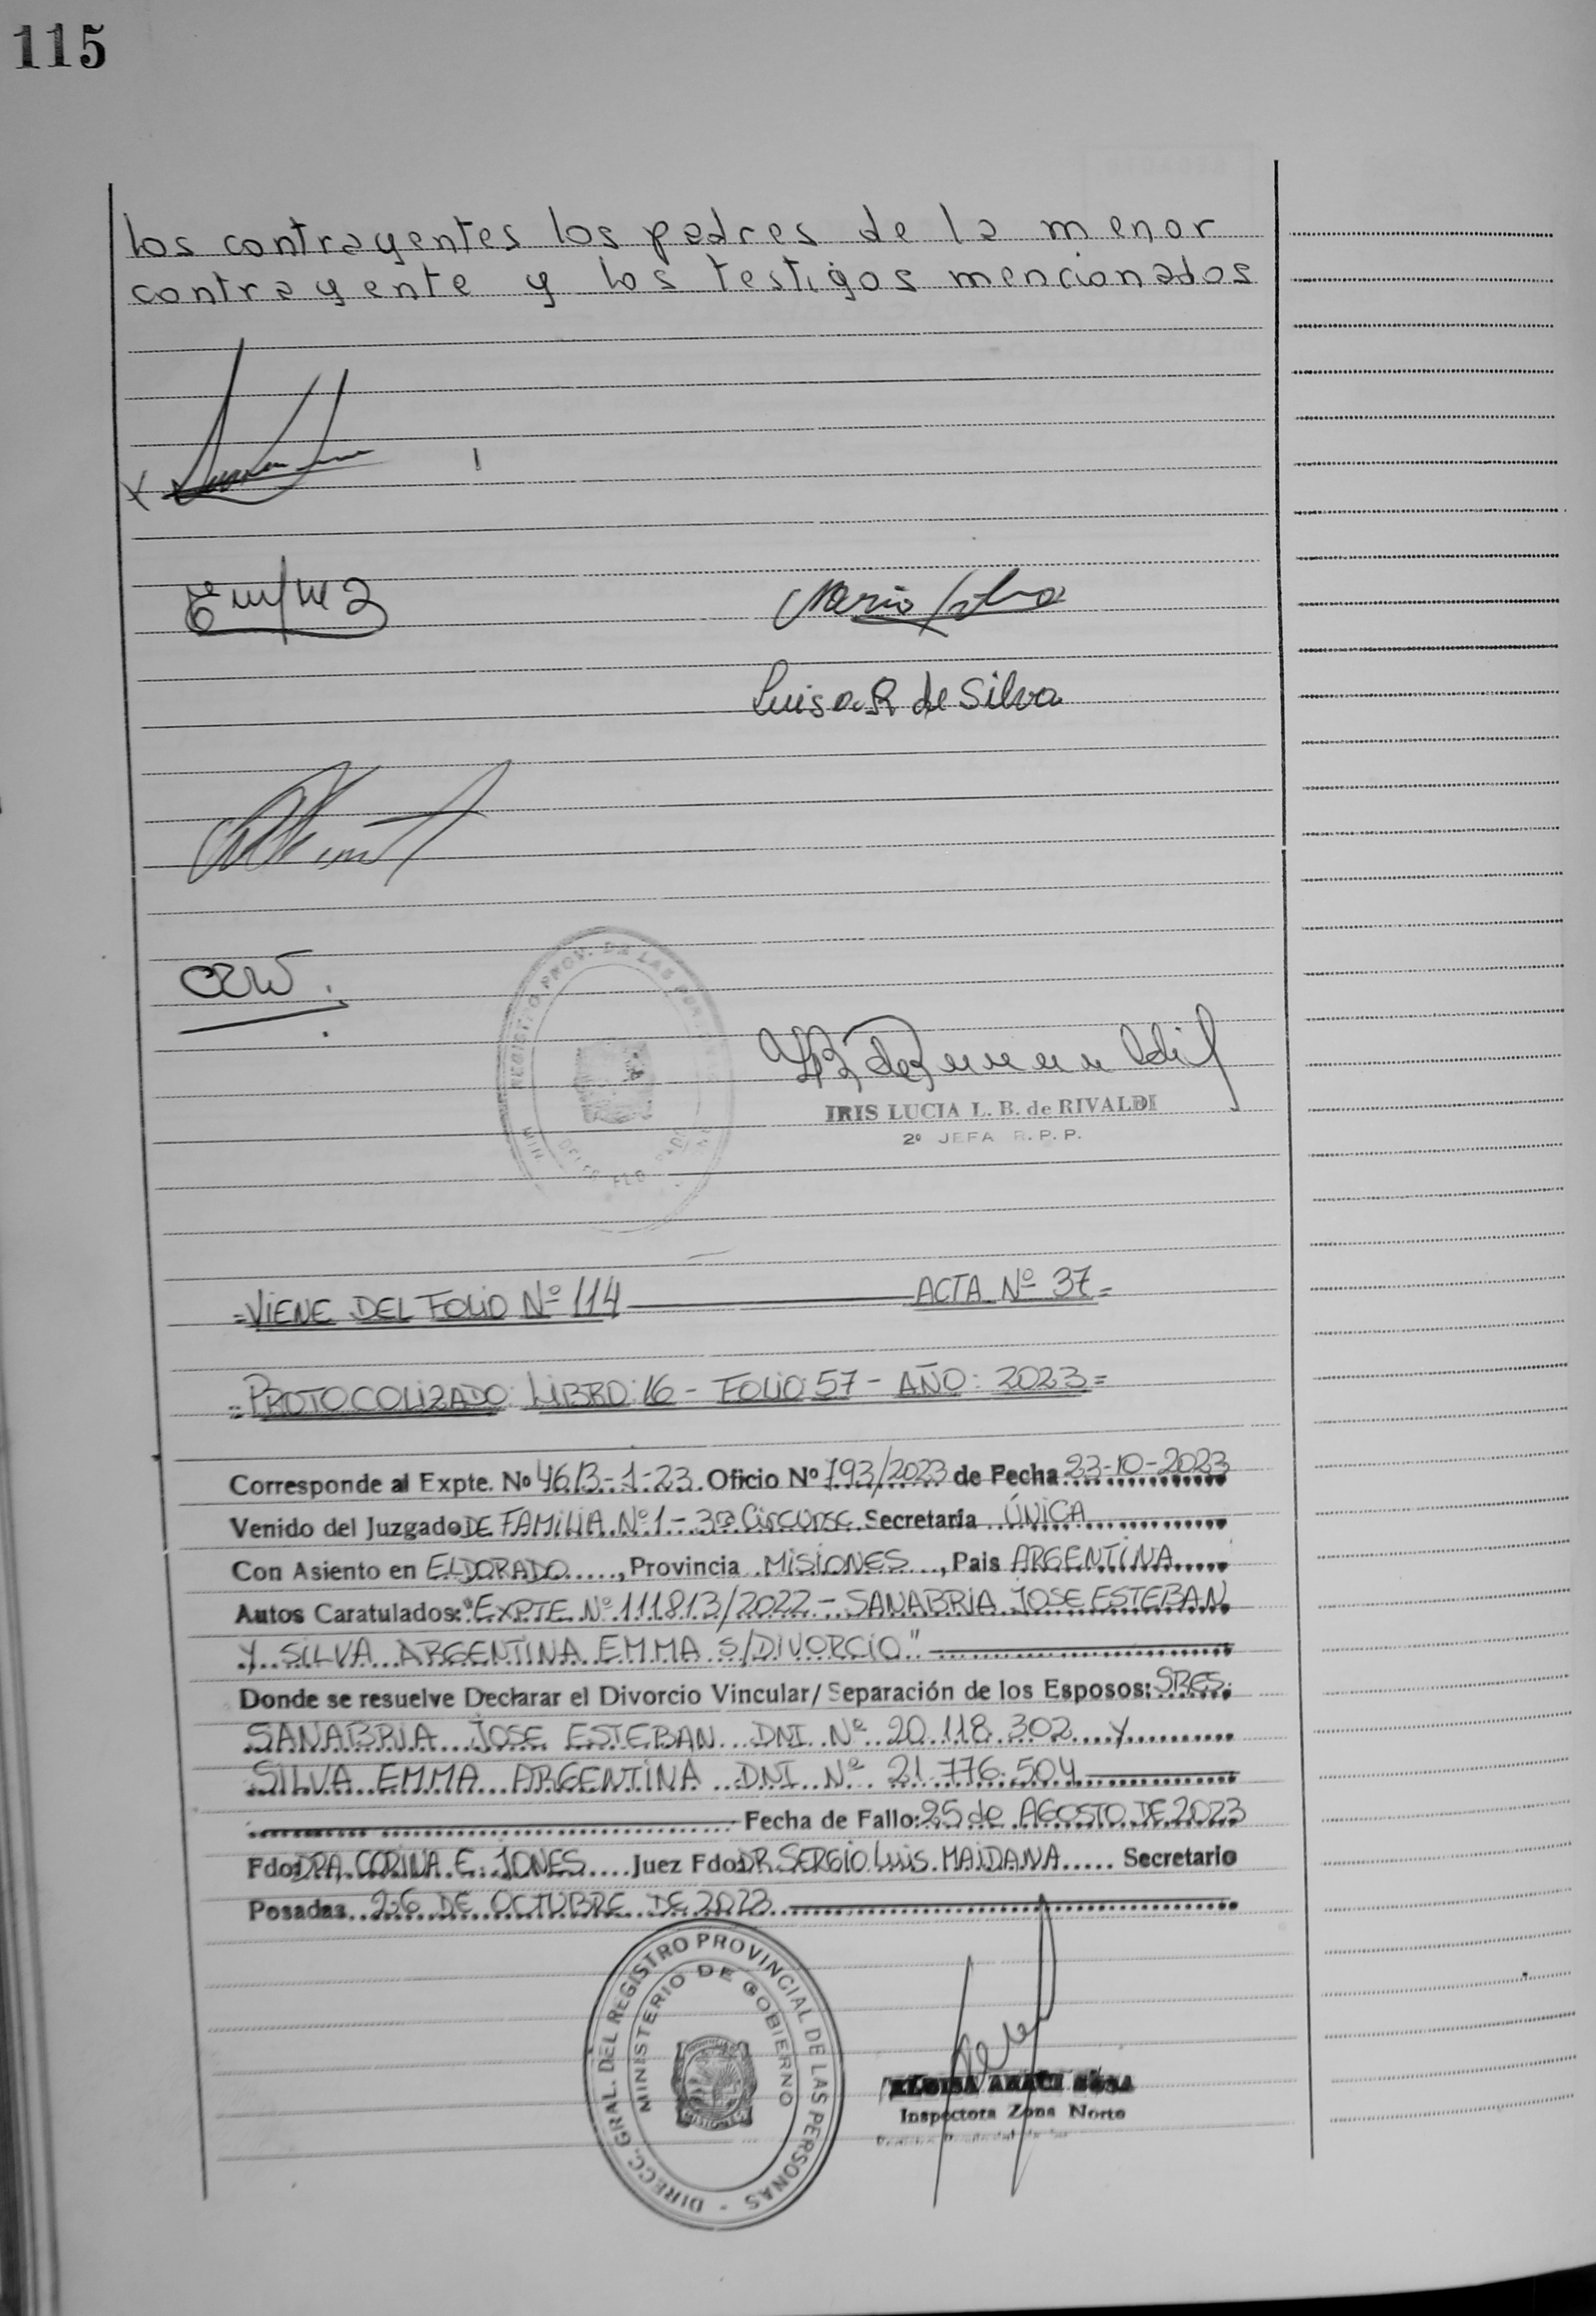 115
los contrayentes los padres de la menor
contrayente y los testigos mencionados
Mario Silva
Luisa R de Silva
REGISTRO PROV. DE LAS
IRIS LUCIA L. B. de RIVALDI
2º JEFA R. P. P.
=VIENE DEL FOLIO Nº 114 ACTA Nº 37=
=PROTOCOLIZADO: LIBRO: 16 - FOLIO: 57 - AÑO: 2023=
Corresponde al Expte. Nº 46/3-1-23. Oficio Nº 793/2023 de Fecha 23-10-2023
Venido del Juzgado DE FAMILIA Nº 1 - 3ra Circunsc. Secretaria ÚNICA
Con Asiento en ELDORADO, Provincia MISIONES, Pais ARGENTINA
Autos Caratulados: "EXPTE Nº 111813/2022 - SANABRIA JOSE ESTEBAN
Y SILVA ARGENTINA EMMA S/DIVORCIO"
Donde se resuelve Declarar el Divorcio Vincular/Separación de los Esposos: SRES.
SANABRIA JOSE ESTEBAN DNI Nº 20.118.302 Y
SILVA EMMA ARGENTINA DNI Nº 21.776.504
Fecha de Fallo: 25 de AGOSTO DE 2023
Fdo: DRA. CORINA E. JONES Juez Fdo: DR. SERGIO LUIS MAIDANA Secretario
Posadas 26 DE OCTUBRE DE 2023
DIRECC. GRAL. DEL REGISTRO PROVINCIAL DE LAS PERSONAS
MINISTERIO DE GOBIERNO
MISIONES
Inspectora Zona Norte